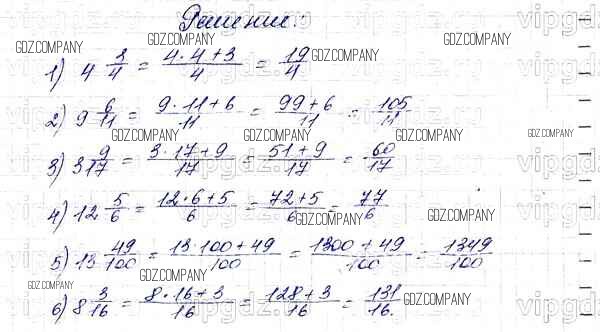 Решение:
1) 4 3/4 = (4·4+3)/4 = 19/4
2) 9 6/11 = (9·11+6)/11 = (99+6)/11 = 105/11
3) 3 9/17 = (3·17+9)/17 = (51+9)/17 = 60/17
4) 12 5/6 = (12·6+5)/6 = (72+5)/6 = 77/6
5) 13 49/100 = (13·100+49)/100 = (1300+49)/100 = 1349/100
6) 8 3/16 = (8·16+3)/16 = (128+3)/16 = 131/16.